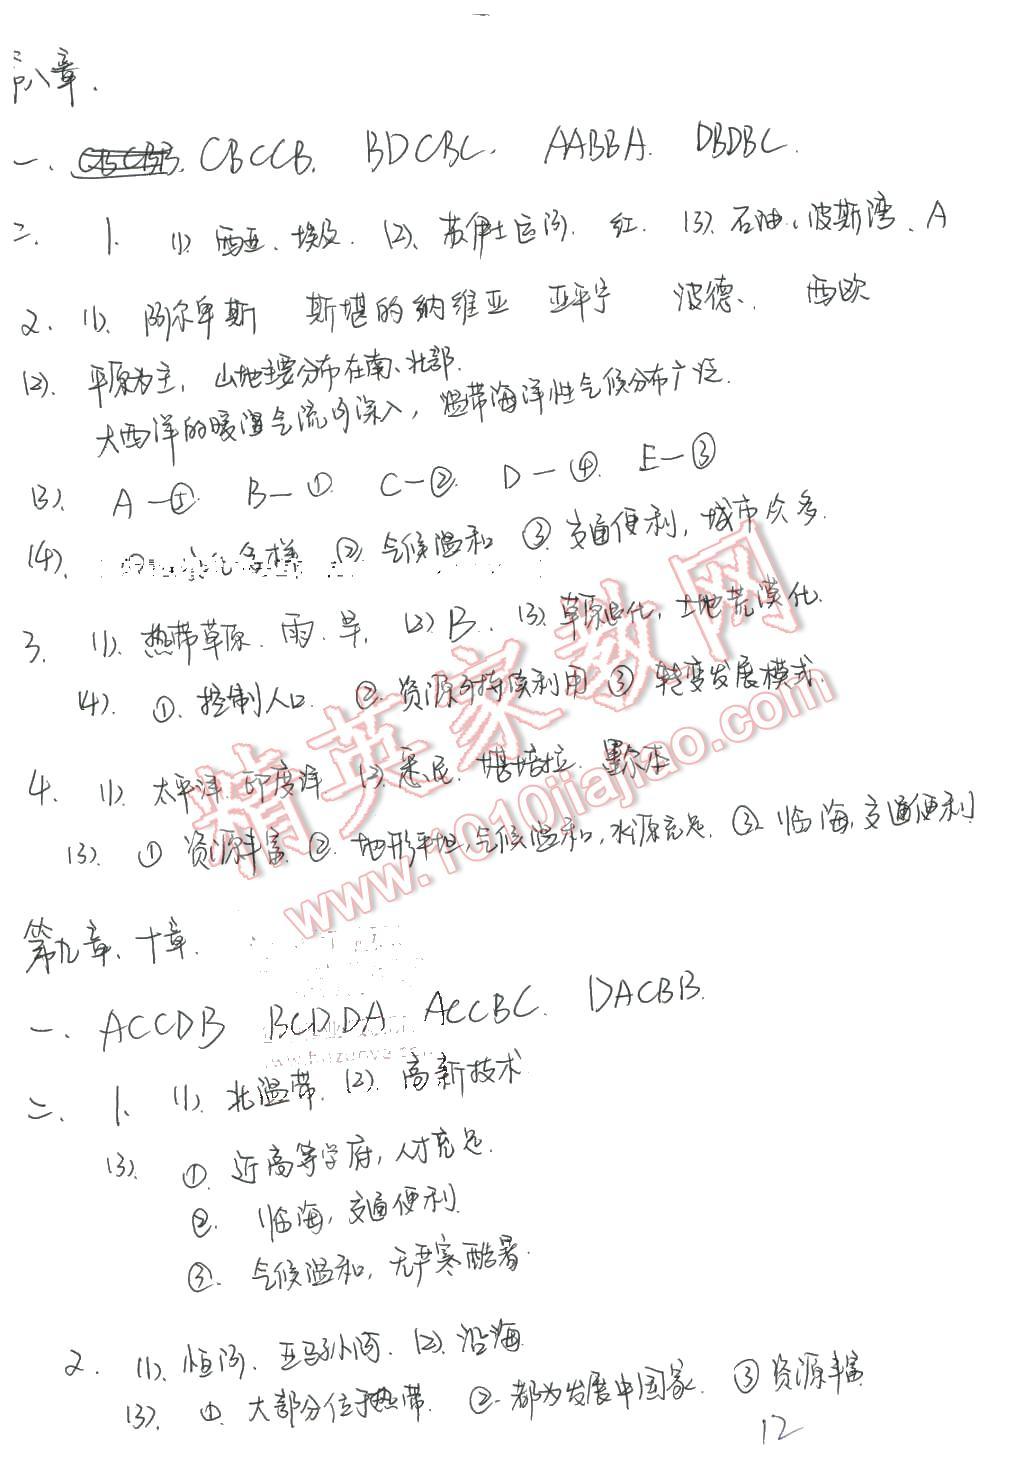 八章.
一. CBCCB. BDCBC. AABBA. DBDBC.
二. 1. (1). 西亚、埃及. (2). 苏伊士运河. 红. (3). 石油、波斯湾、A
2. (1). 阿尔卑斯 斯堪的纳维亚 亚平宁 波德、 西欧
(2). 平原为主, 山地主要分布在南、北部.
大西洋的暖湿气流可深入, 温带海洋性气候分布广泛.
(3). A—⑤. B—①. C—②. D—④. E—③
(4). 多样 ②. 气候温和 ③. 交通便利, 城市众多.
3. (1). 热带草原. 雨. 旱. (2) B. (3). 草原退化, 土地荒漠化.
(4). ①. 控制人口. ②. 资源可持续利用 ③ 转变发展模式.
4. (1). 太平洋 印度洋 (2). 悉尼. 堪培拉. 墨尔本
(3). ① 资源丰富 ②. 地形平坦, 气候温和, 水源充足. ③. 临海, 交通便利
第九章、十章.
一. ACCDB BCDDA ACCBC. DACBB.
二. 1. (1). 北温带. (2). 高新技术
(3). ①. 近高等学府, 人才充足.
②. 临海, 交通便利.
③. 气候温和, 无严寒酷暑.
2. (1). 恒河. 亚马孙河. (2). 沿海
(3). ①. 大部分位于热带. ②. 都为发展中国家. ③ 资源丰富
12
精英家教网
www.1010jiajiao.com